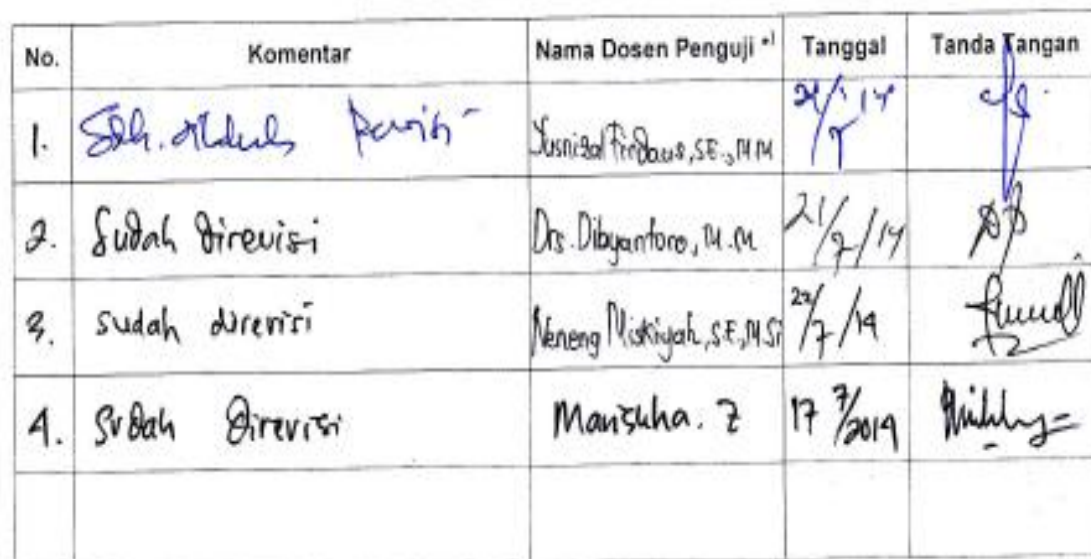 No. Komentar Nama Dosen Penguji *) Tanggal Tanda Tangan
1. Yusnizal Firdaus, SE., MM
2. Sudah direvisi Drs. Dibyantoro, M.M 21/7/14
3. sudah direvisi Neneng Miskiyah, SE, M.Si 22/7/14
4. Sudah Direvisi 17 7/2014